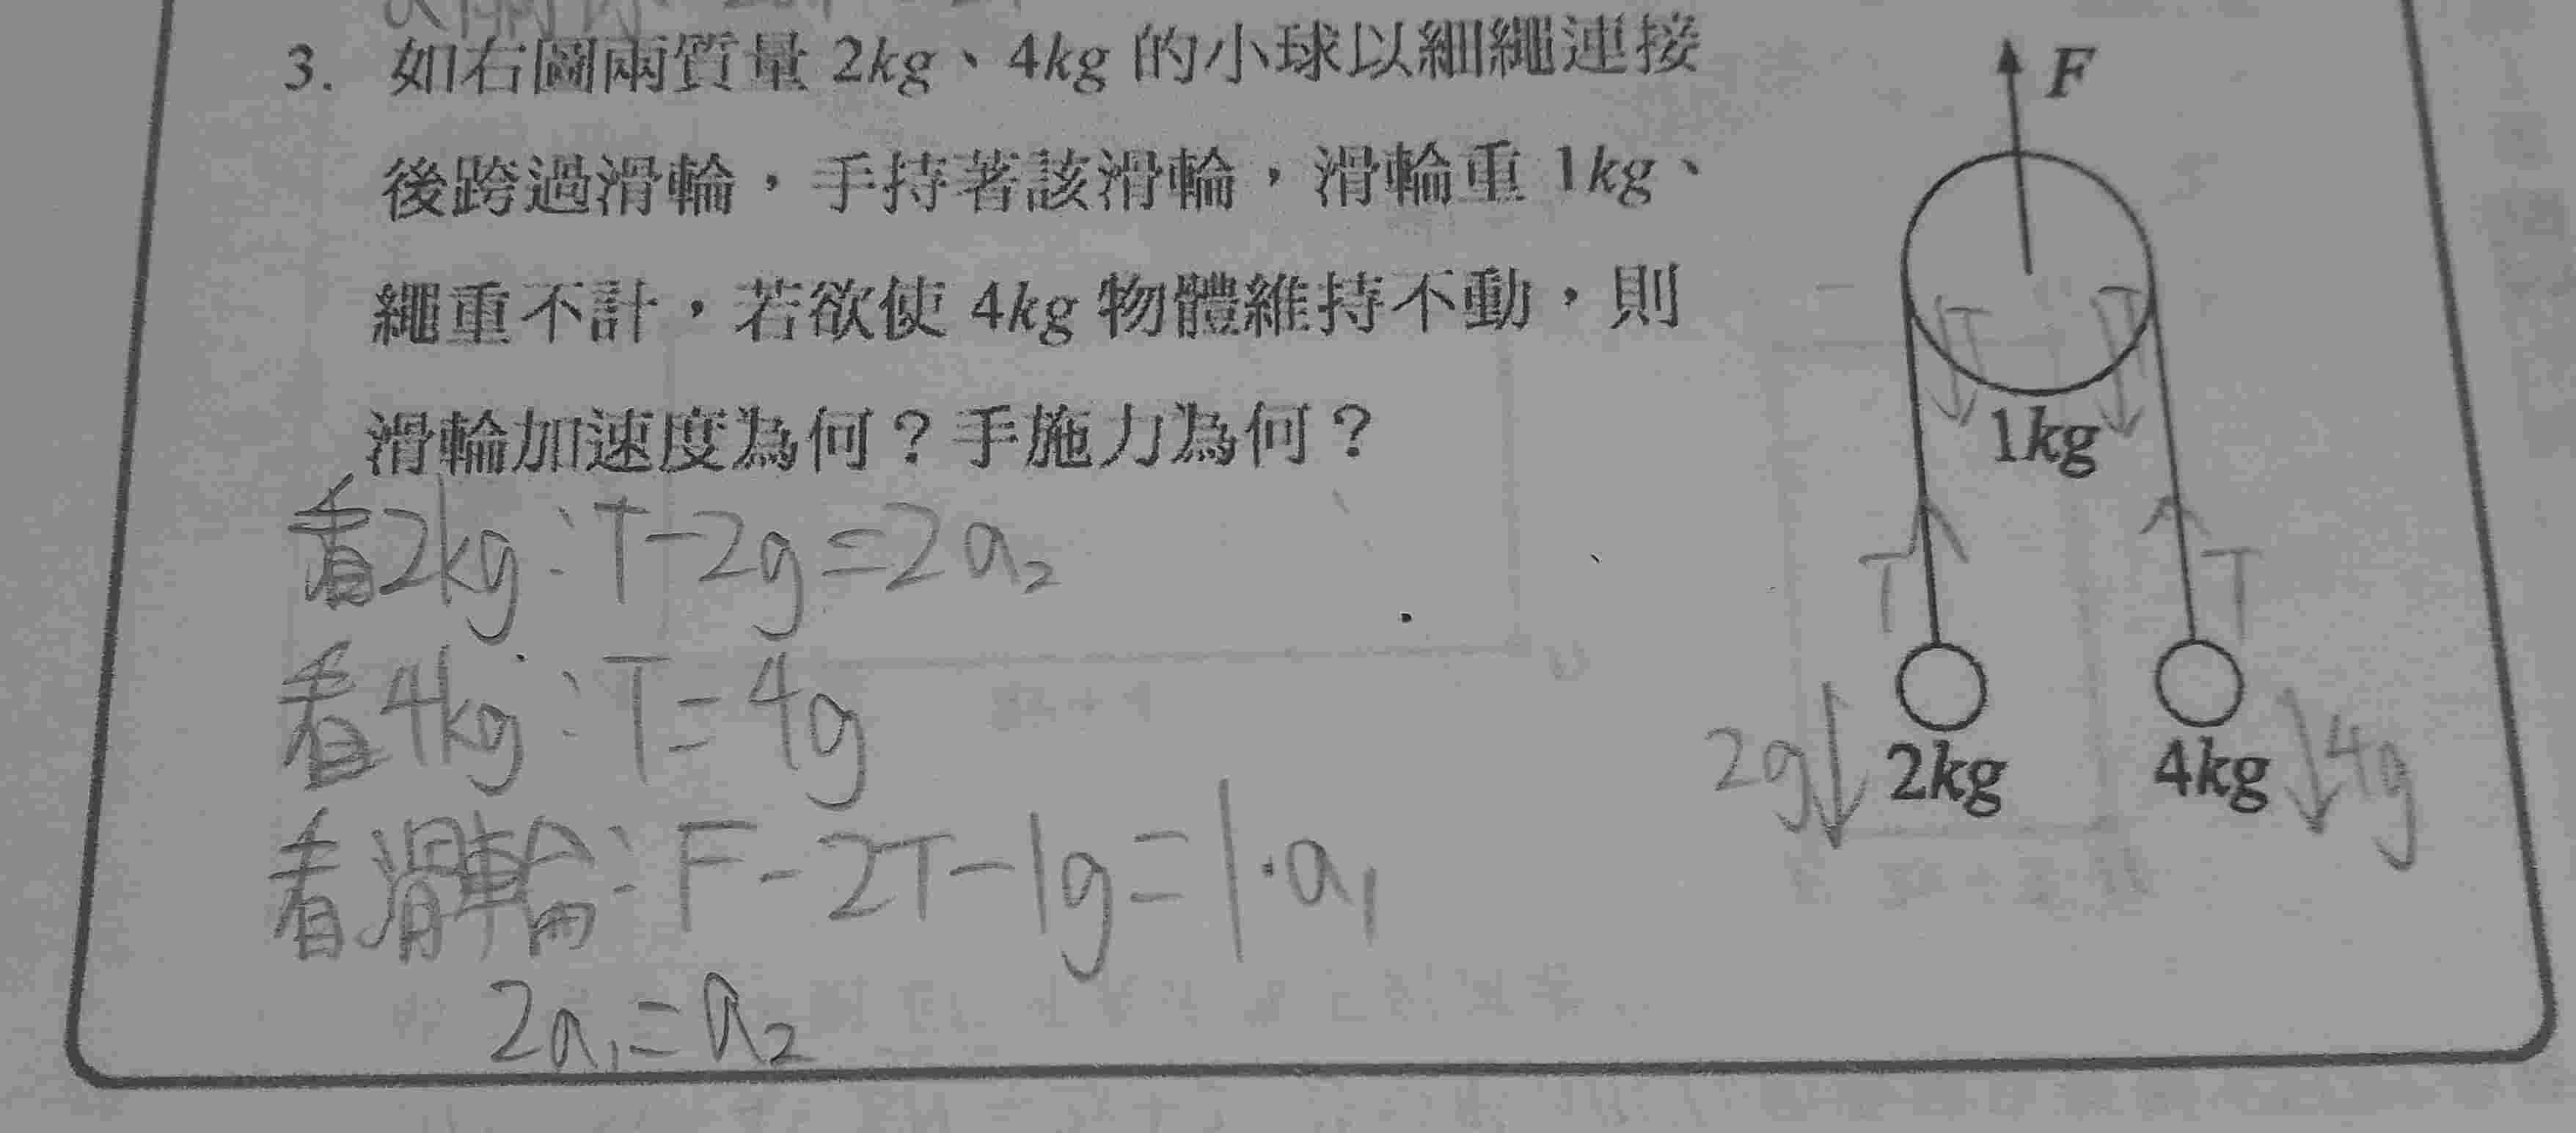 3. 如右圖兩質量 2kg、4kg 的小球以細繩連接
後跨過滑輪，手持著該滑輪，滑輪重 1kg、
繩重不計，若欲使 4kg 物體維持不動，則
滑輪加速度為何？手施力為何？
看2kg：T-2g=2a₂
看4kg：T=4g
看滑輪：F-2T-1g=1·a₁
2a₁=a₂
F
T T
1kg
T T
2g 2kg 4kg 4g